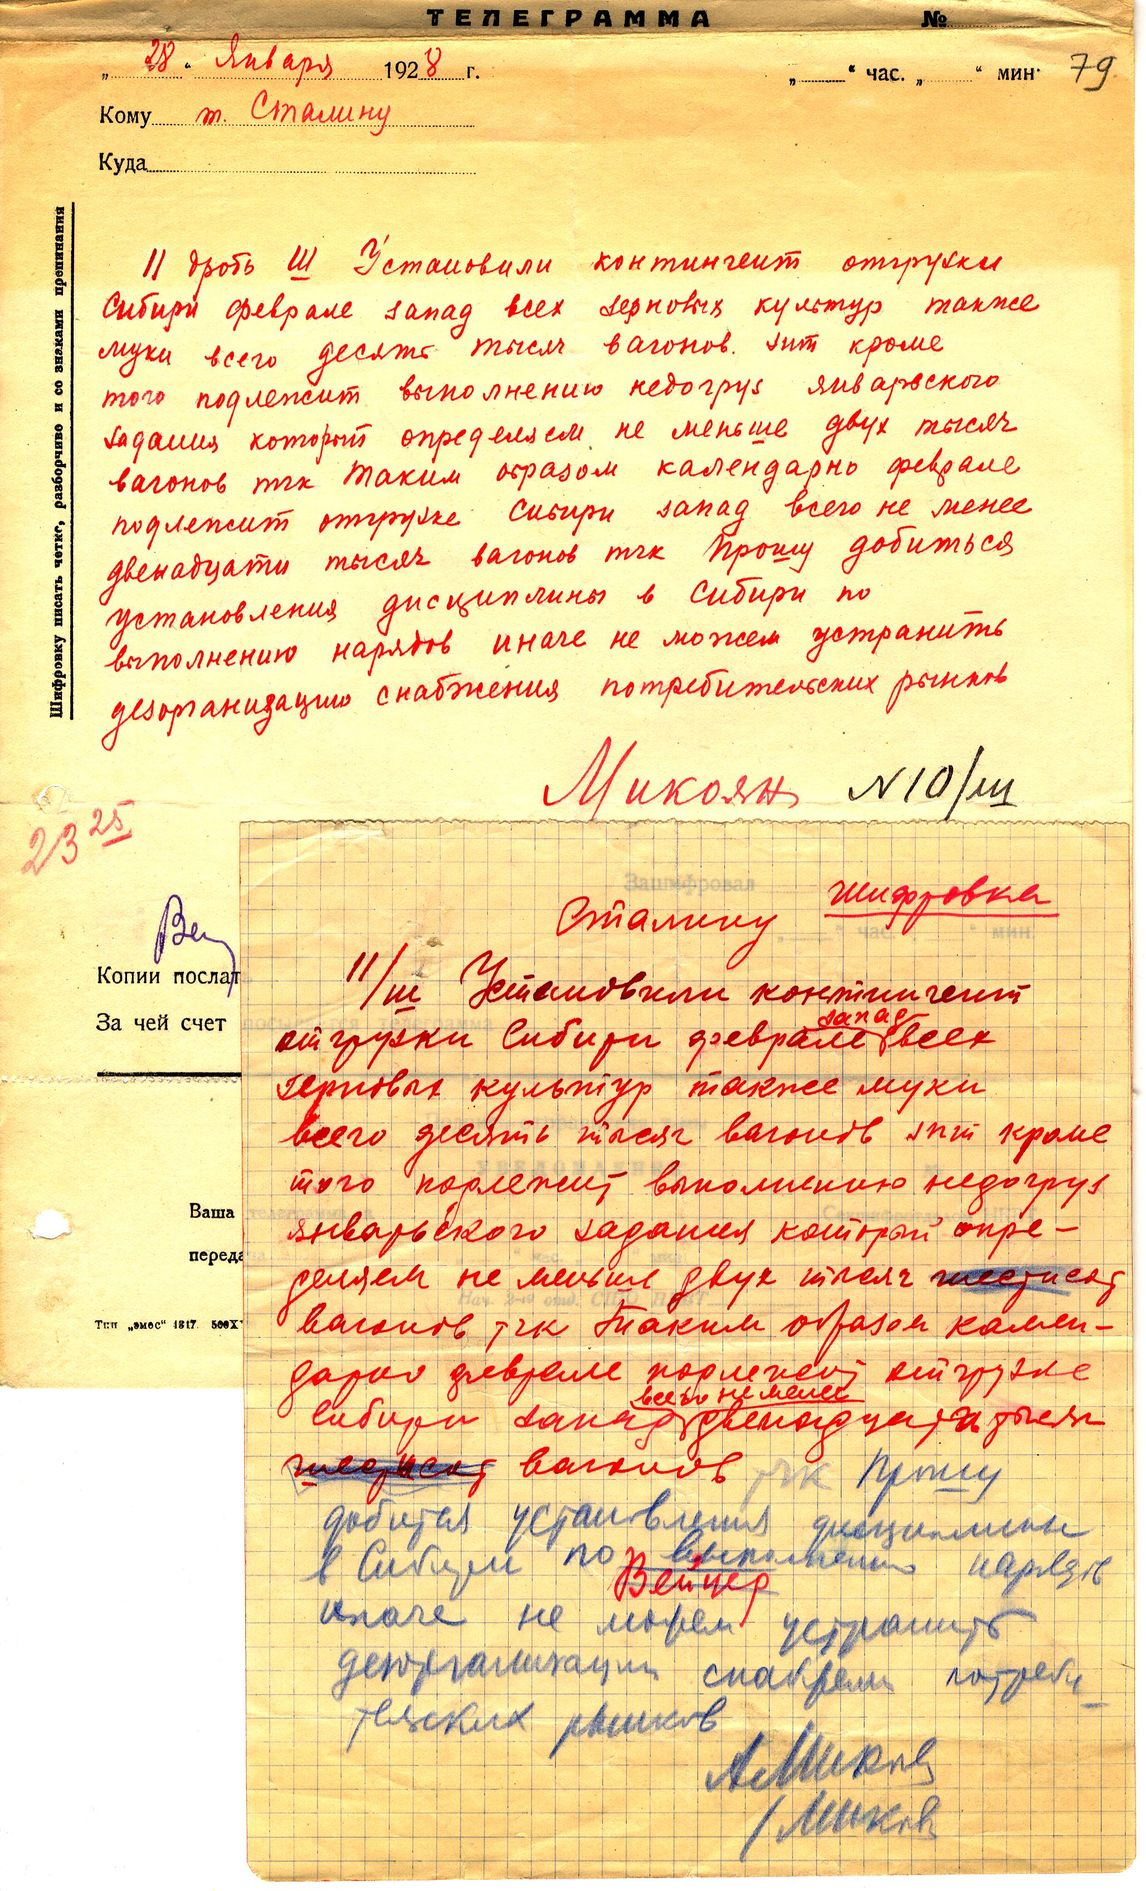 ТЕЛЕГРАММА №
„ 28 “ Января 1928 г. „ “ час. „ “ мин. 79
Кому т. Сталину
Куда
Шифровку писать четко, разборчиво и со знаками препинания
11 дробь Ш Установили контингент отгрузки
Сибири феврале запад всех зерновых культур также
муки всего десять тысяч вагонов зпт кроме
того подлежит выполнению недогруз январьского
задания который определяем не меньше двух тысяч
вагонов тчк Таким образом календарно феврале
подлежит отгрузке Сибири запад всего не менее
двенадцати тысяч вагонов тчк Прошу добиться
установления дисциплины в Сибири по
выполнению нарядов иначе не можем устранить
дезорганизацию снабжения потребительских рынков
Микоян N 10/ш
23 25
Зашифровал
шифровка
Сталину
„ “ час. “ мин.
Копии послат
За чей счет
11/ш Установили контингент
запад
отгрузки Сибири феврале всех
зерновых культур также муки
всего десять тысяч вагонов зпт кроме
того подлежит выполнению недогруз
Ваша
январьского задания который опре-
переда
деляем не меньше двух тысяч шестисот
Тип „эмос“ 1817
вагонов тчк Таким образом кален-
дарно феврале подлежит отгрузке
всего не менее
Сибири запад двенадцати тысяч
шестисот вагонов тчк Прошу
добиться установления дисциплины
в Сибири по выполнению нарядов
Вейцер
иначе не можем устранить
дезорганизации снабжения потреби-
тельских рынков
А Микоян
/Микоян